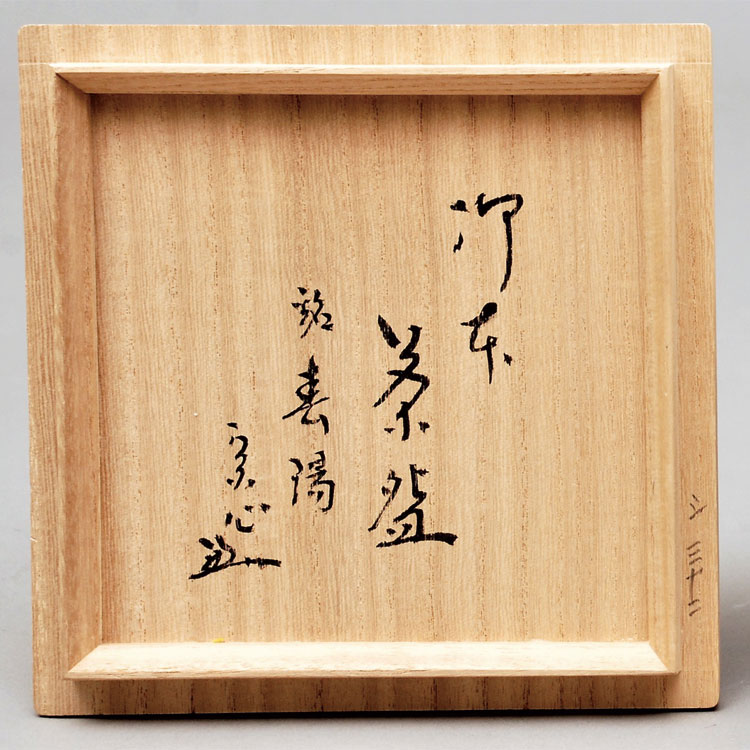 御本
茶盌
銘 春陽
宗心
シ 三十二